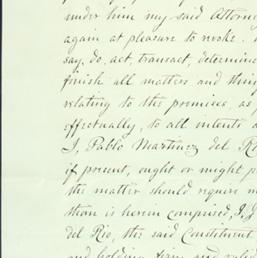 under him my said Attorn
again at pleasure to revoke.
say, do, act, transact, determine
finish all matters and thin
relating to the premises, as
effectually, to all intents a
I, Pablo Martinez del R
if present, ought or might p
the matter should require m
them is herein comprised, I,
del Rio, the said Constituent
and holding firm and valid